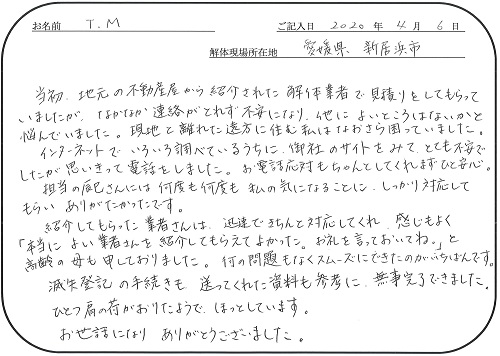 お名前 T.M ご記入日 2020年4月6日
解体現場所在地 愛媛県 新居浜市
当初、地元の不動産屋から紹介された解体業者で見積りをしてもらって
いましたが、なかなか連絡がとれず不安になり、他によいところはないかと
悩んでいました。現地と離れた遠方に住む私はなおさら困っていました。
インターネットでいろいろ調べているうちに、御社のサイトをみて、とても不安で
したが思いきって電話をしました。お電話応対もちゃんとしてくれまずひと安心。
担当の辰巳さんには何度も何度も私の気になることに、しっかり対応して
もらいありがたかったです。
紹介してもらった業者さんは、迅速できちんと対応してくれ、感じもよく
「本当によい業者さんを紹介してもらえてよかった。お礼を言っておいてね。」と
高齢の母も申しておりました。何の問題もなくスムーズにできたのがいちばんです。
滅失登記の手続きも送ってくれた資料も参考に、無事完了できました。
ひとつ肩の荷がおりたようで、ほっとしています。
お世話になりありがとうございました。